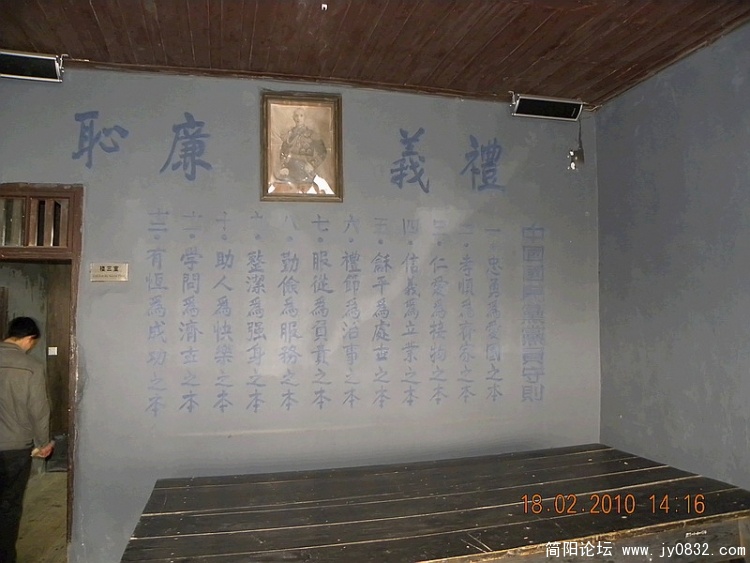 禮義廉恥
中國國民黨黨員守則
一。忠勇為愛國之本
二。孝順為齊家之本
三。仁愛為接物之本
四。信義為立業之本
五。龢平為處世之本
六。禮節為治事之本
七。服從為負責之本
八。勤儉為服務之本
九。整潔為强身之本
十。助人為快樂之本
十一。学問為濟世之本
十二。有恒為成功之本
18.02.2010 14:16
简阳论坛 www.jy0832.com